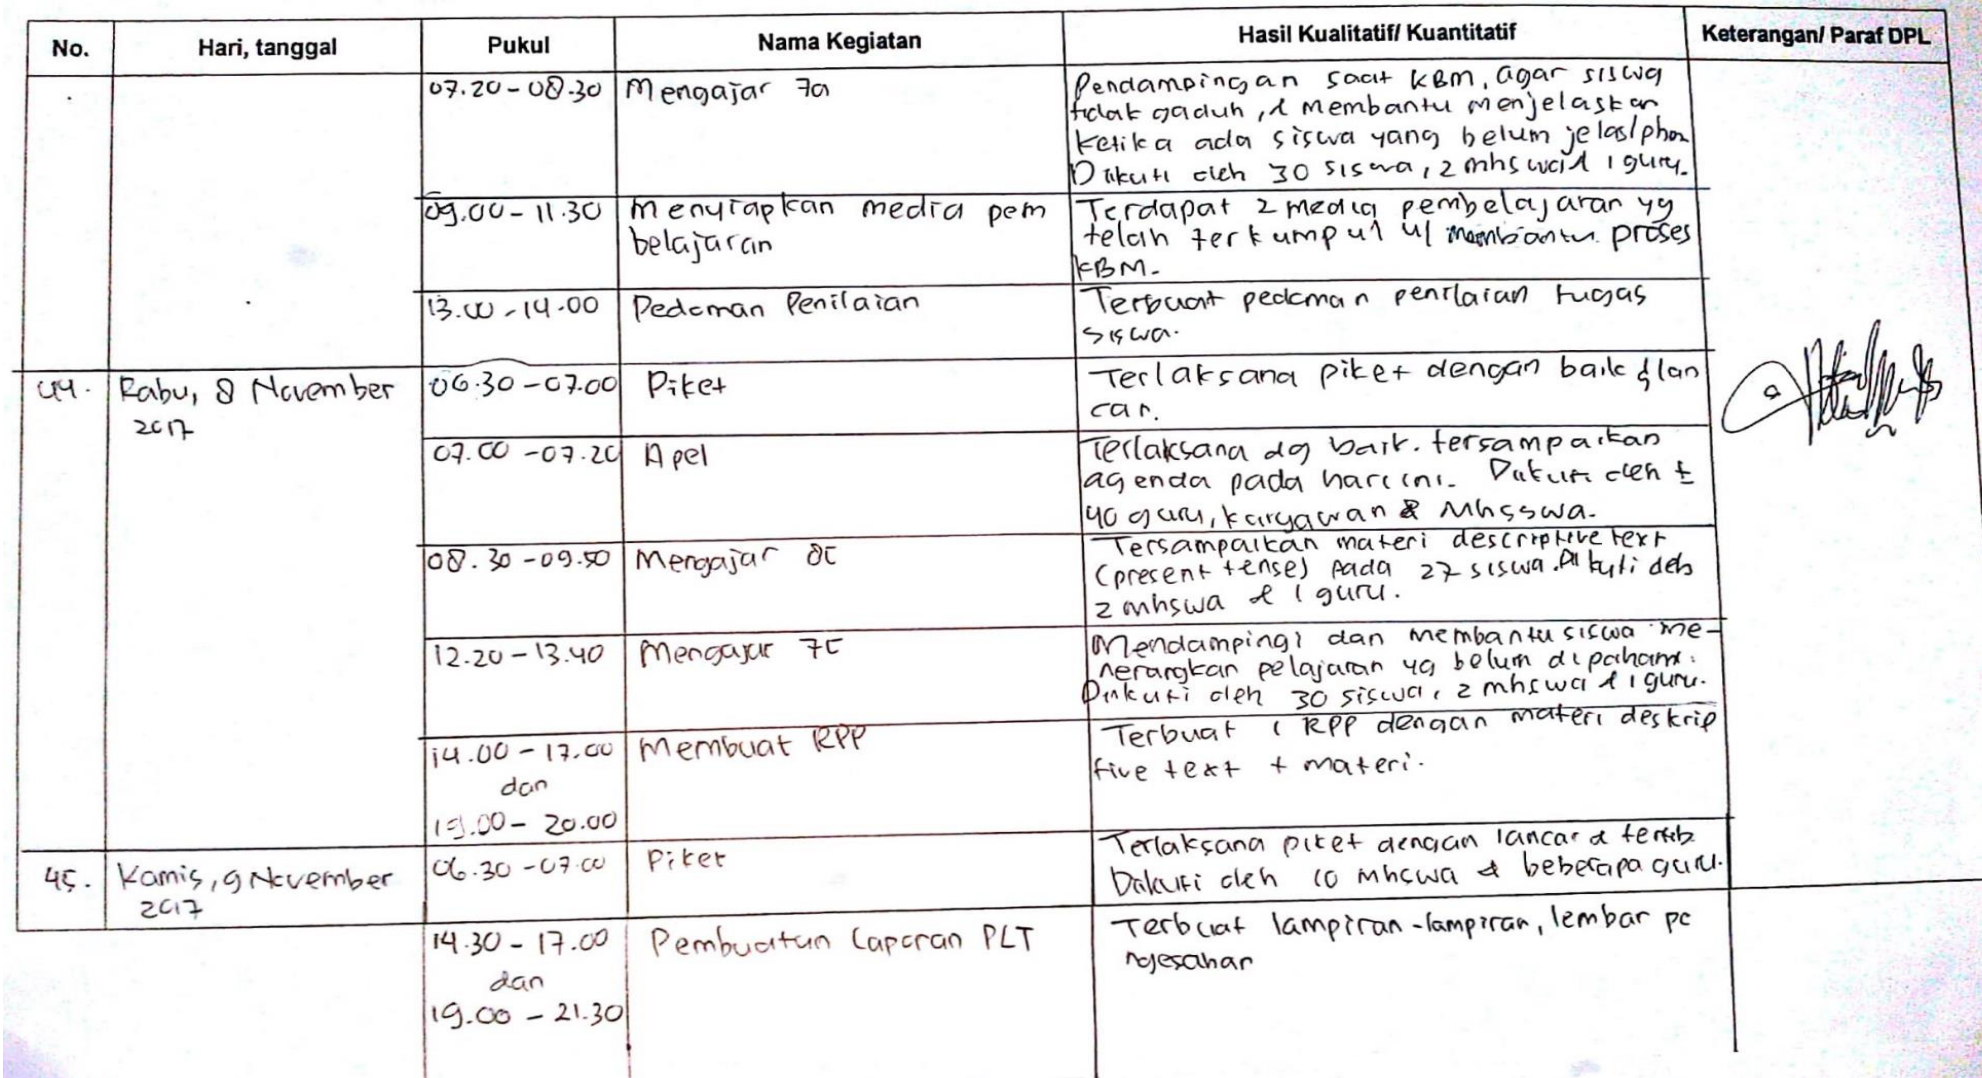 No. Hari, tanggal Pukul Nama Kegiatan Hasil Kualitatif/ Kuantitatif Keterangan/ Paraf DPL
07.20 - 08.30 Mengajar 7a Pendampingan saat KBM, agar siswa
tidak gaduh, & membantu menjelaskan
ketika ada siswa yang belum jelas/phm
Diikuti oleh 30 siswa, 2 mhswa & 1 guru.
09.00 - 11.30 Menyiapkan media pem Terdapat 2 media pembelajaran yg
belajaran telah terkumpul u/ membantu proses
KBM.
13.00 - 14.00 Pedoman Penilaian Terbuat pedoman penilaian tugas
siswa.
44. Rabu, 8 November 06.30 - 07.00 Piket Terlaksana piket dengan baik & lan
2017 car.
07.00 - 07.20 Apel Terlaksana dg baik. tersampaikan
agenda pada hari ini. Diikuti oleh ±
40 guru, karyawan & Mhsswa.
08.30 - 09.50 Mengajar 8C Tersampaikan materi descriptive text
(present tense) pada 27 siswa. Diikuti oleh
2 mhswa & 1 guru.
12.20 - 13.40 Mengajar 7C Mendampingi dan membantu siswa me-
nerangkan pelajaran yg belum dipahami.
Diikuti oleh 30 siswa, 2 mhswa & 1 guru.
14.00 - 17.00 Membuat RPP Terbuat 1 RPP dengan materi deskrip
dan tive text + materi.
19.00 - 20.00
45. Kamis, 9 November 06.30 - 07.00 Piket Terlaksana piket dengan lancar & tertib
2017 Diikuti oleh 10 mhswa & beberapa guru.
14.30 - 17.00 Pembuatan Laporan PLT Terbuat lampiran-lampiran, lembar pe
dan ngesahan
19.00 - 21.30